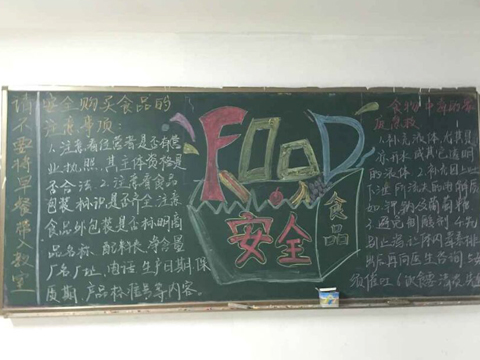 请不要将早餐带入教室
安全购买食品的
注意事项:
1.注意看经营者是否有营
业执照,其主体资格是
否合法 2.注意看食品
包装标识是否齐全,注意
食品外包装是否标明商
品名称、配料表、净含量
厂名厂址、电话 生产日期 保
质期、产品标准号等内容。
FOOD
食品
安全
食物中毒的
应急
1.补充液体,尤其是
开水或其它透明
的液体 2.补充因上吐
下泻所流失的
如
3.避免 制酸剂 4.先
别止泻 让体内毒素排
出后再向医生咨询 5.
饮食